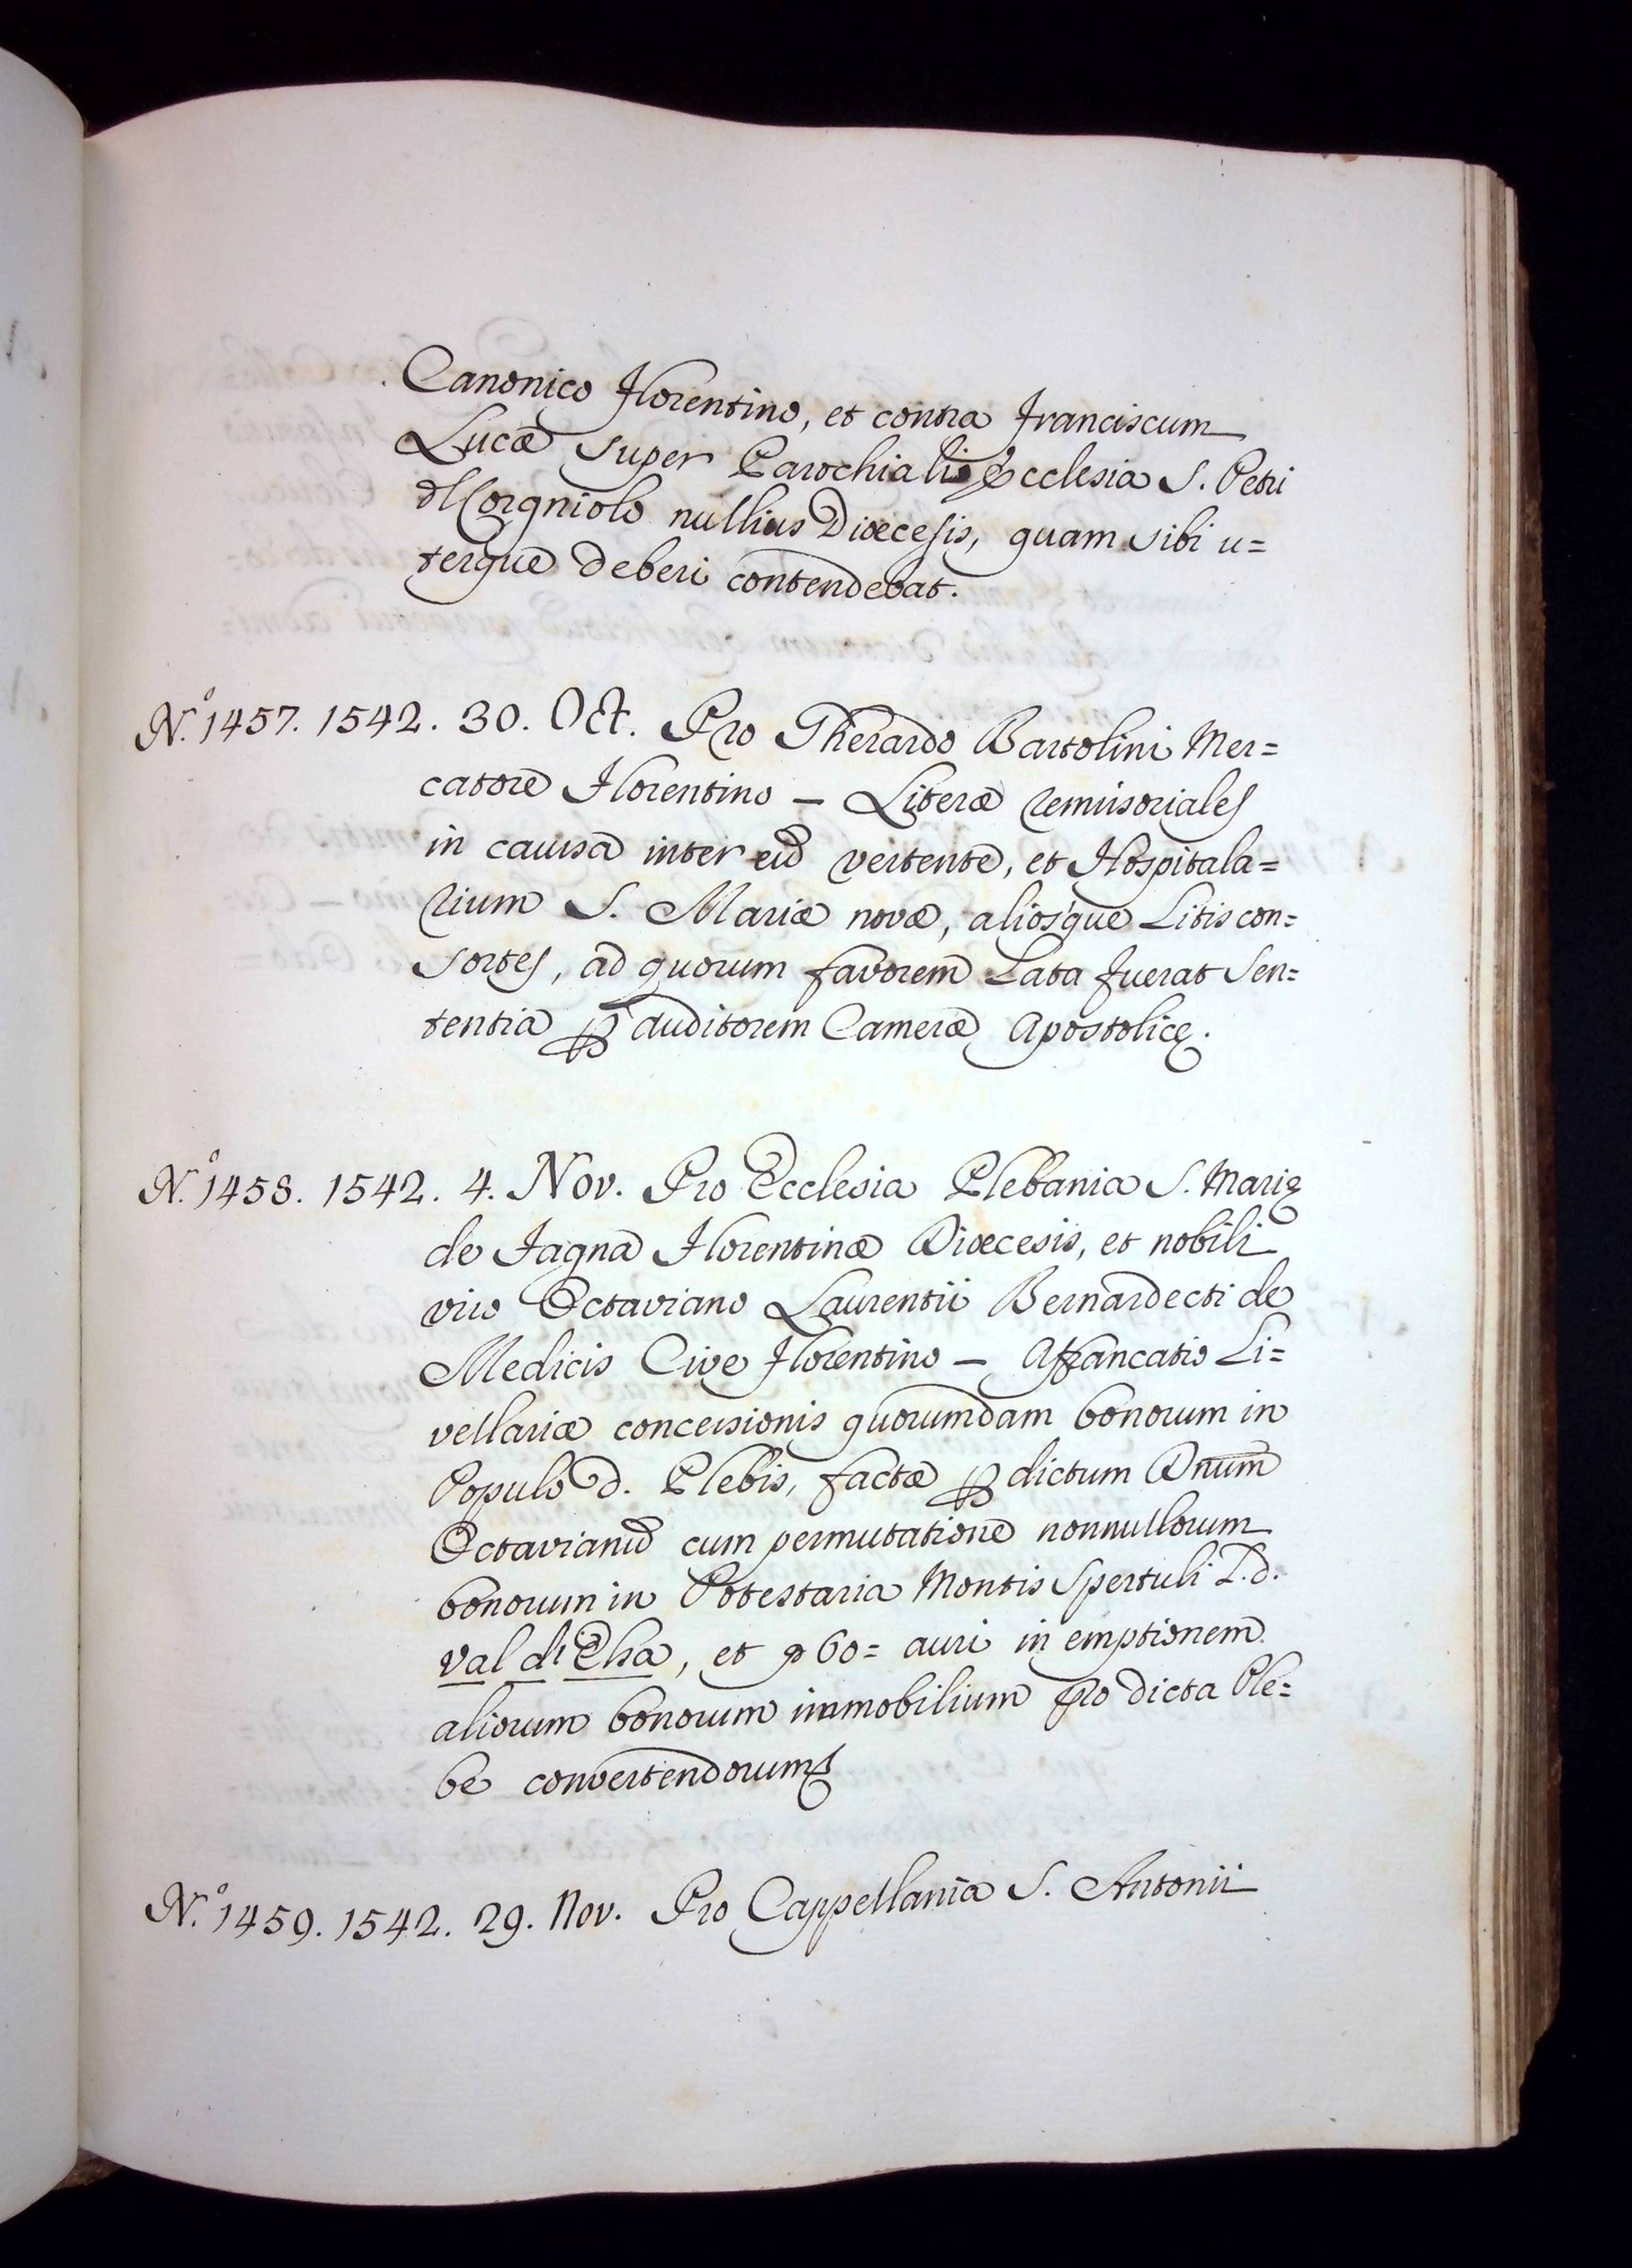 Canonico Florentino, et contra Franciscum
Lucæ super Parochiali Ecclesia S. Petri
Corgniolo nullius Diœcesis, quam sibi u=
terque deberi contendebat.
N.º 1457. 1542. 30. Oct. Pro Gherardo Bartolini Mer=
catore Florentino – Literæ remissoriales
in causa inter eũ vertente, et Hospitala=
rium S. Mariæ novæ, aliosque Litiscon=
sortes, ad quorum favorem Lata fuerat Sen=
tentia ꝑ Auditorem Cameræ Apostolicę.
N.º 1458. 1542. 4. Nov. Pro Ecclesia Plebania S. Marię
de Fagna Florentinæ Diœcesis, et nobili
viro Octaviano Laurentii Bernardecti de
Medicis Cive Florentino – Affrancatio Li=
vellariæ concessionis quorumdam bonorum in
Populo d. Plebis, factæ ꝑ dictum Dnum̃
Octavianũ cum permutatione nonnullorum
bonorum in Potestaria Montis Spertuli L.d.
Val di Elsa, et 60= auri in emptionem
aliorum bonorum immobilium pro dicta Ple=
be convertendorum
N.º 1459. 1542. 29. Nov. Pro Cappellania S. Antonii